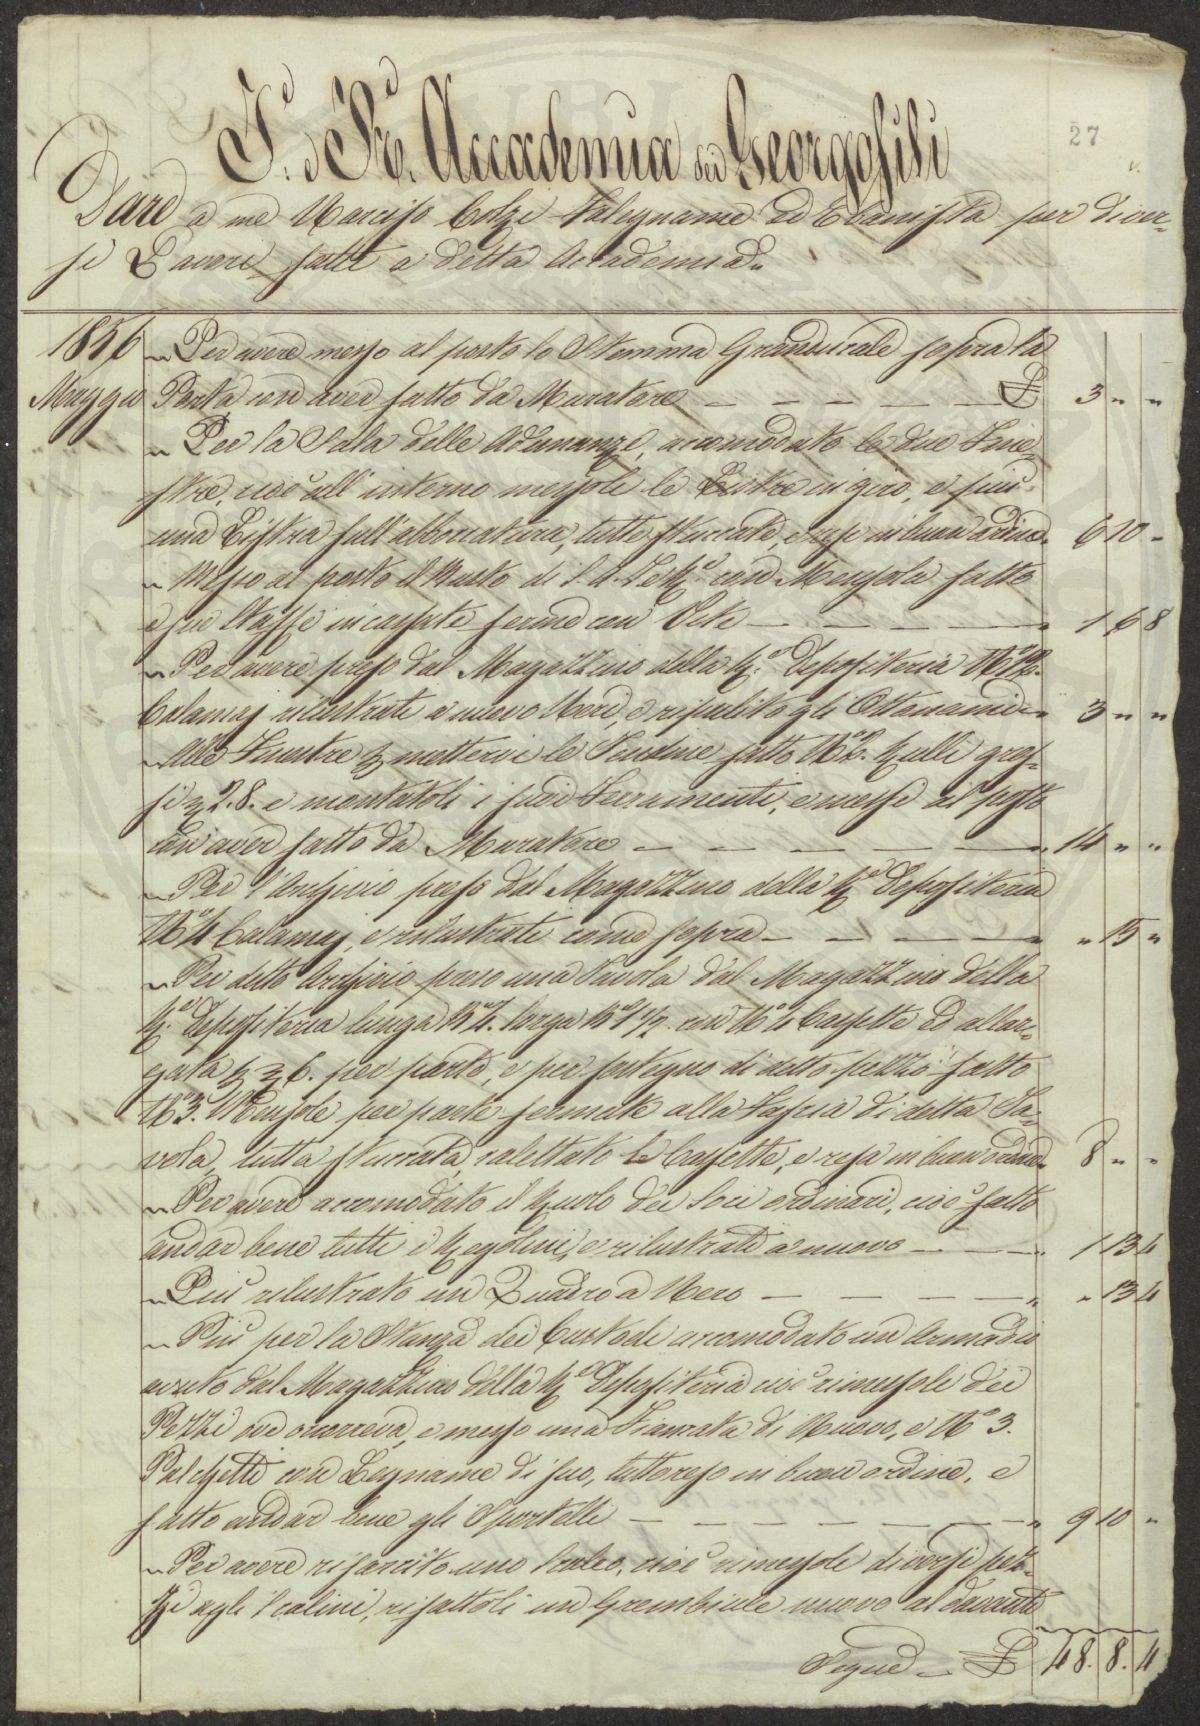 I. e R. Accademia dei Georgofili
27
Dare a me Narciso Colzi Falegname ed Ebanista per diver=
si Lavori fatti a detta Accademia
1856 „ Per avere messo al posto lo Stemma Granducale sopra la
Maggio Porta con aver fatto da Muratore — — — — £ 3 „ „
„ Per la Sala delle Adunanze, accomodato le due Fine=
stre, cioè all'interno messole le Listre in giro, e più
una Listra sull'abboccatura, tutte stuccate, e rese in buon ordine „ 6 10 „
„ Messo al posto il Busto di con Mensola fatto
e sue Staffe incassate ferme con Vite — — — — „ 1 6 8
„ Per avere preso dal Magazzino della R. Depositeria N°
Calamaj rilustrati a nuovo Neri, e ripulito gli Ottonami „ 3 „ „
„ Alle Finestre mettervi le Tendine fatto N° Rulli gros=
si 2.8. e montatoli i suoi Ferramenti, e messi al posto
con aver fatto da Muratore — — — — „ 14 „ „
„ Per l'Archivio preso dal Magazzino della R. Depositeria
N° 4 Calamaj, e rilustrati come sopra — — — — „ „ 15 „
„ Per detto Archivio preso una Tavola dal Magazzino della
R. Depositeria lunga larga 1/2 con N° 4 Cassette ed allar=
gata 6. per parte, e per sostegno di detto pezzo fatto
N° 3. Mensole per parte fermate alla Fascia di detta Ta=
vola, tutta stuccata, calettato le Cassette, e resa in buon ordine „ 8 „ „
„ Per avere accomodato il Ruolo dei Soci ordinari, cioè fatto
andar bene tutti i Regolini, e rilustrato a nuovo — — — „ 1 13 4
„ Più rilustrato un Quadro a Nero — — — — „ „ 13 4
„ Più per la Stanza dei Custodi accomodato un Armadio
avuto dal Magazzino della R. Depositeria cioè rimessole dei
Pezzi ove occorreva, e messo una Fiancata di Nuovo, e N° 3.
Palchetti con Legname di suo, tutto reso in buon ordine, e
fatto andar bene gli Sportelli — — — — „ 9 10 „
„ Per avere risarcito uno Scaleo, cioè rimessole diversi pez=
zi agli Scalini, rifattoli un Grembiale nuovo al davanti
Segue — £ 48. 8. 4